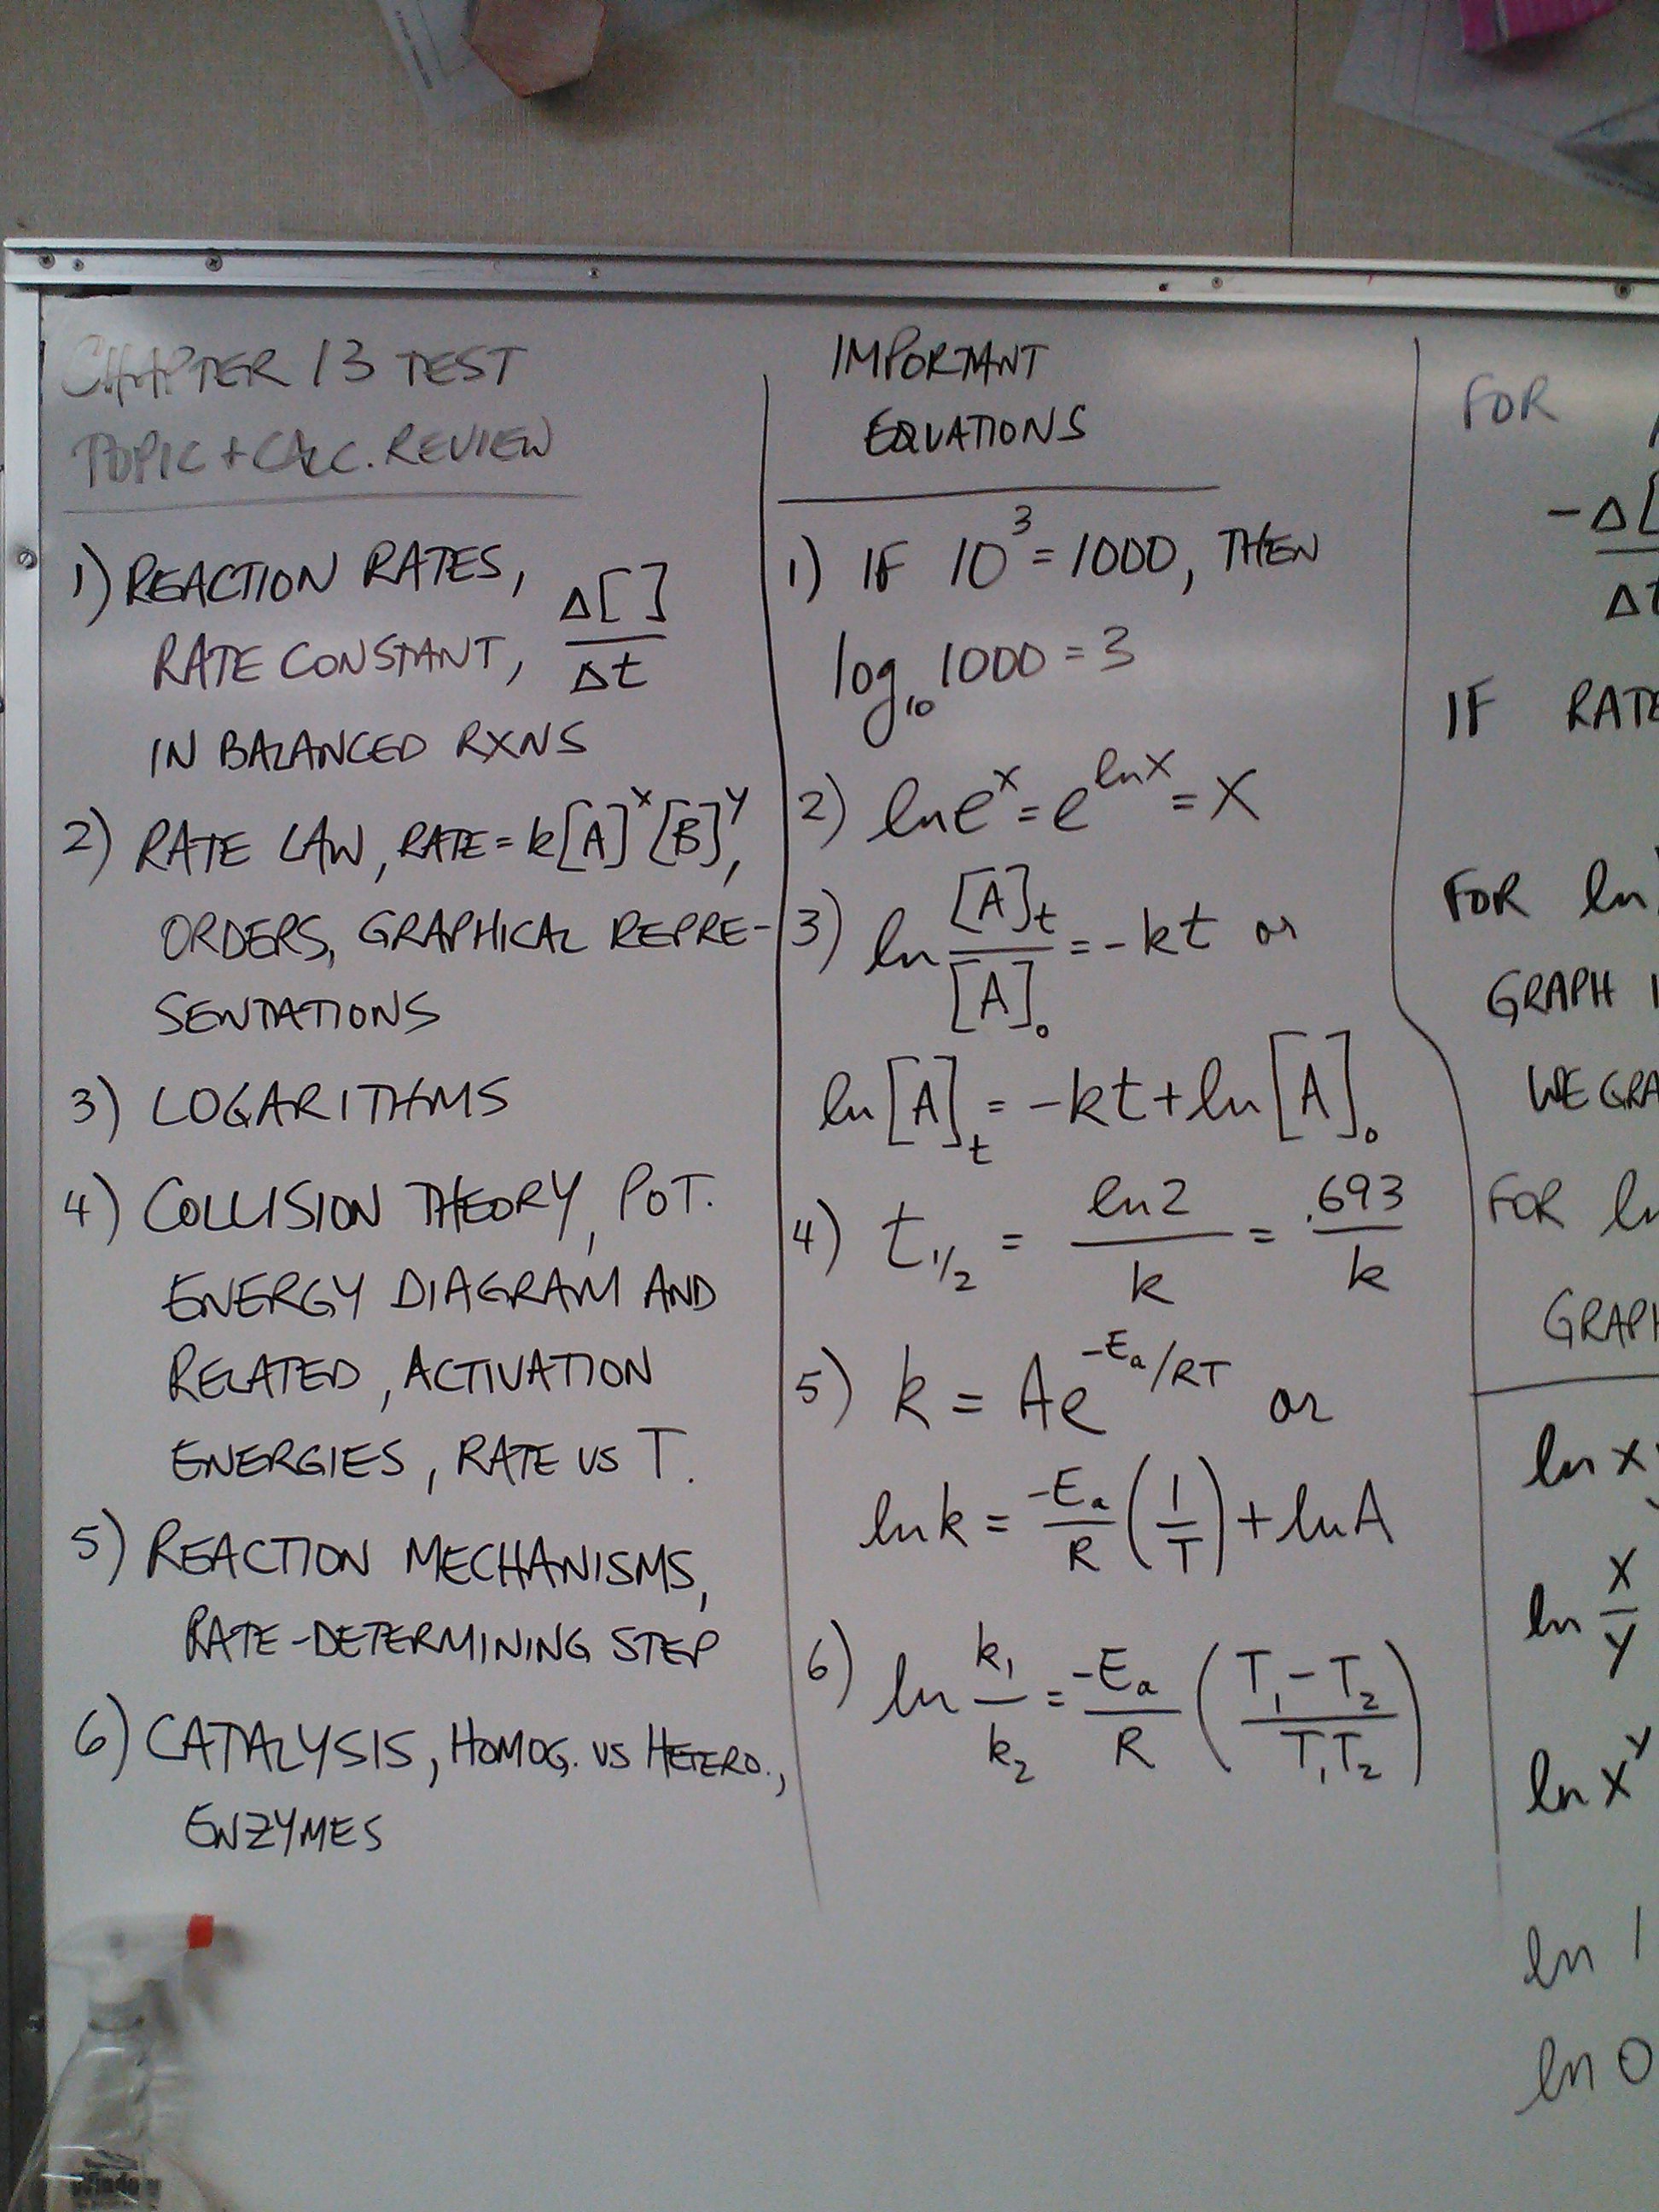 CHAPTER 13 TEST
TOPIC + CALC. REVIEW
1) REACTION RATES,
RATE CONSTANT, Δ[ ]/Δt
IN BALANCED RXNS
2) RATE LAW, RATE = k[A]^x [B]^y,
ORDERS, GRAPHICAL REPRE-
SENTATIONS
3) LOGARITHMS
4) COLLISION THEORY, POT.
ENERGY DIAGRAM AND
RELATED, ACTIVATION
ENERGIES, RATE VS T.
5) REACTION MECHANISMS,
RATE-DETERMINING STEP
6) CATALYSIS, HOMOG. VS HETERO.,
ENZYMES
IMPORTANT
EQUATIONS
1) IF 10^3 = 1000, THEN
log_10 1000 = 3
2) ln e^x = e^(ln x) = x
3) ln [A]_t/[A]_0 = -kt or
ln [A]_t = -kt + ln [A]_0
4) t_1/2 = ln 2/k = .693/k
5) k = Ae^(-E_a/RT) or
ln k = -E_a/R (1/T) + ln A
6) ln k_1/k_2 = -E_a/R (T_1 - T_2/T_1T_2)
FOR
-Δ[
Δt
IF RATE
FOR ln
GRAPH
WE GRA
FOR ln
GRAPH
ln x
ln x/y
ln x^y
ln 1
ln 0
Windex